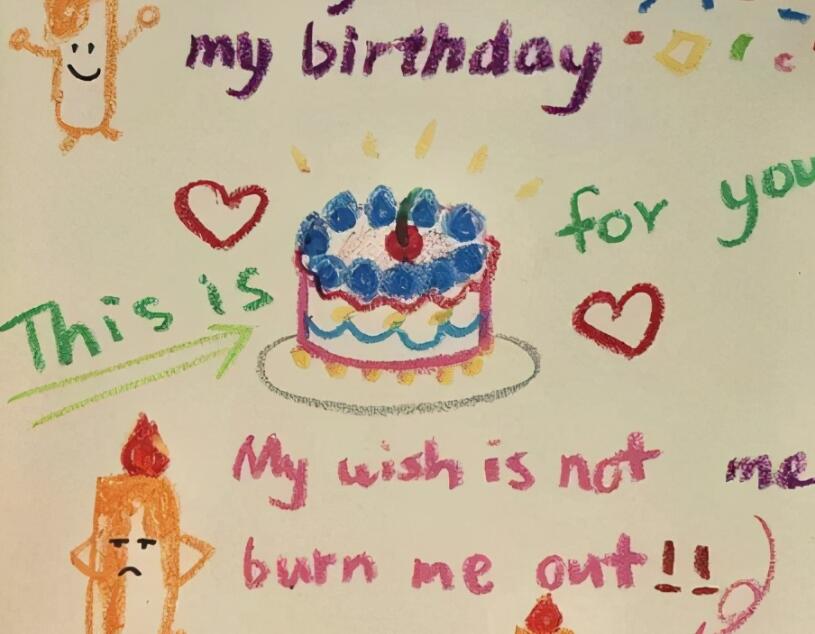 my birthday
for you
This is
My wish is not me
burn me out!!